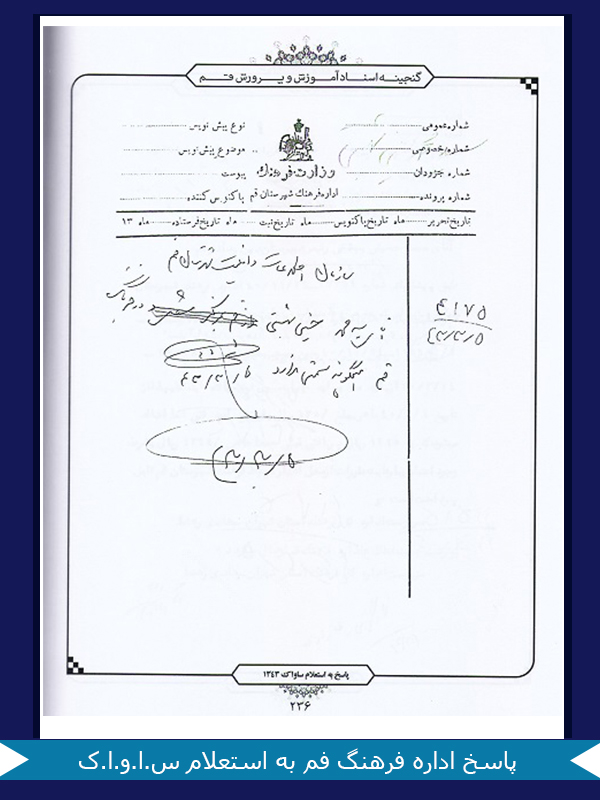 گنجینه اسناد آموزش و پرورش قم
شماره عمومی
شماره خصوصی
شماره جزودان
شماره پرونده
وزارت فرهنگ
اداره فرهنگ شهرستان قم
نوع پیش نویس
موضوع پیش نویس
پیوست
پاکنویس کننده
تاریخ تحریر ماه تاریخ پاکنویس ماه تاریخ ثبت ماه تاریخ فرستاده ماه ۱۳
سازمان اطلاعات و امنیت شهرستان قم
سید محمد حسینی بهشتی در فرهنگ
قم هیچگونه سمتی ندارد ۴۳/۳/۵
۴۱۷۵
۴۳/۳/۵
۴۳/۳/۵
پاسخ به استعلام ساواک ۱۳۴۳
۲۳۶
پاسخ اداره فرهنگ قم به استعلام س.ا.و.ا.ک